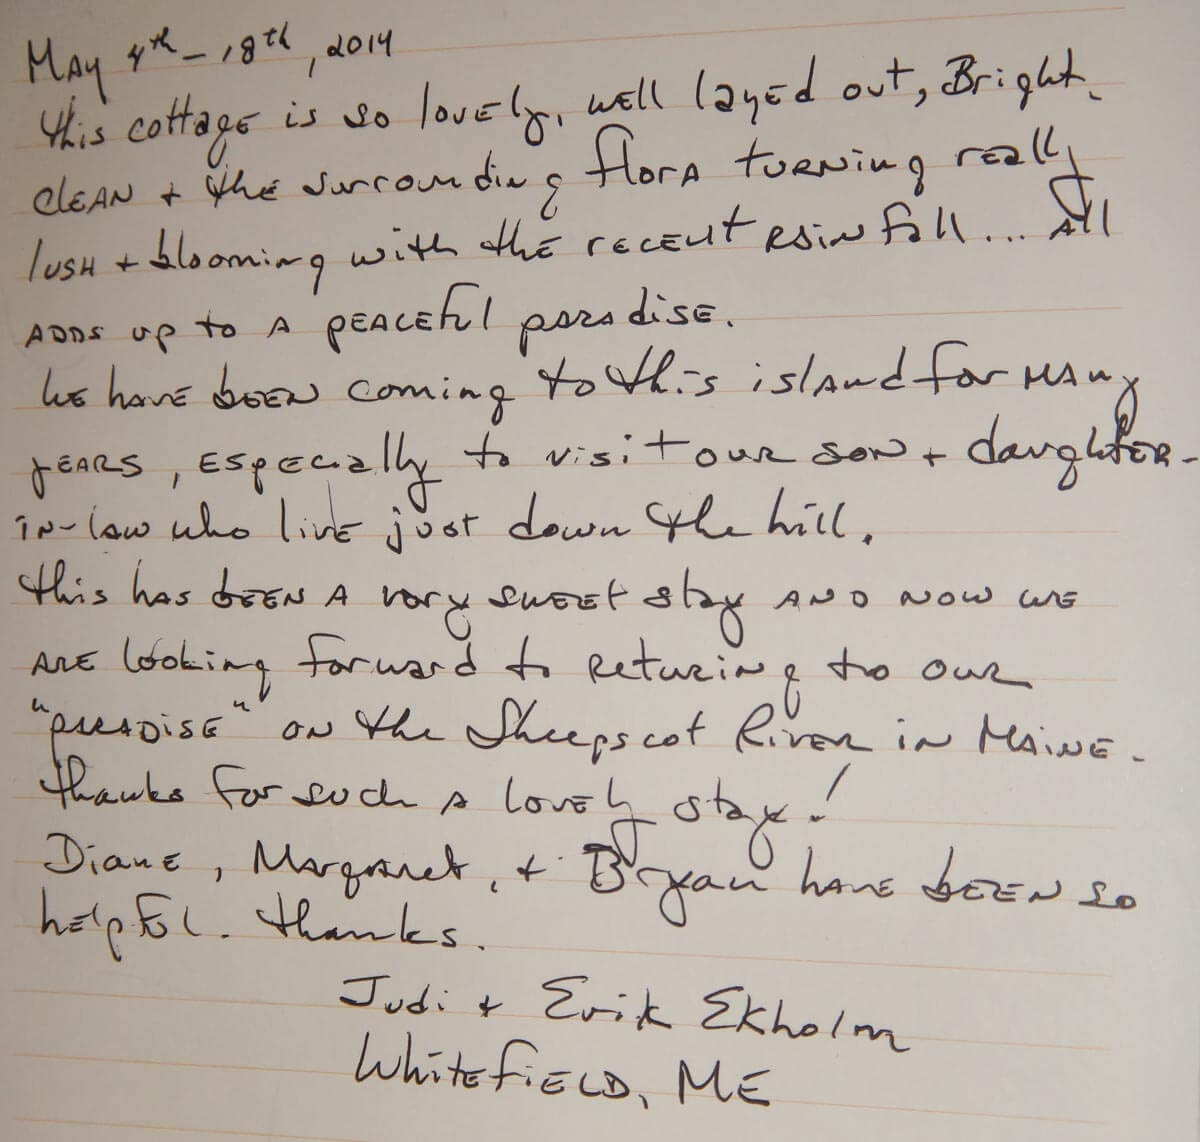 May 4th - 18th, 2014
This cottage is so lovely, well layed out, Bright,
clean + the surrounding flora turning really
lush + blooming with the recent rainfall... All
adds up to a peaceful paradise.
We have been coming to this island for many
years, especially to visit our son + daughter-
in-law who live just down the hill.
This has been a very sweet stay and now we
are looking forward to returing to our
"paradise" on the Sheepscot River in Maine.
Thanks for such a lovely stay!
Diane, Margaret, + Bryan have been so
helpful. Thanks.
Judi + Erik Ekholm
Whitefield, ME